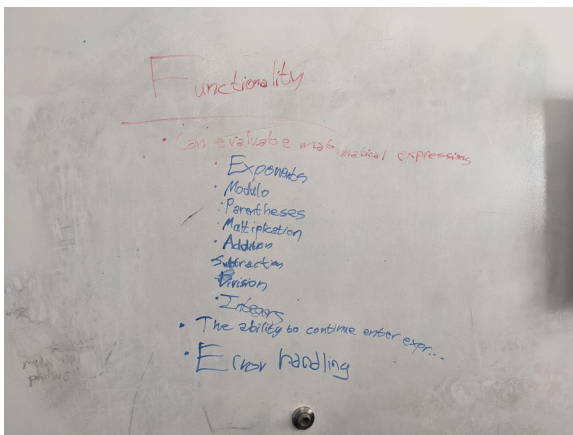 Functionality
• Can evaluate mathmatical expressions
• Exponents
• Modulo
• Parentheses
• Multiplication
• Addition
Subtraction
Division
• Integers
• The ability to continue enter expr...
• Error handling